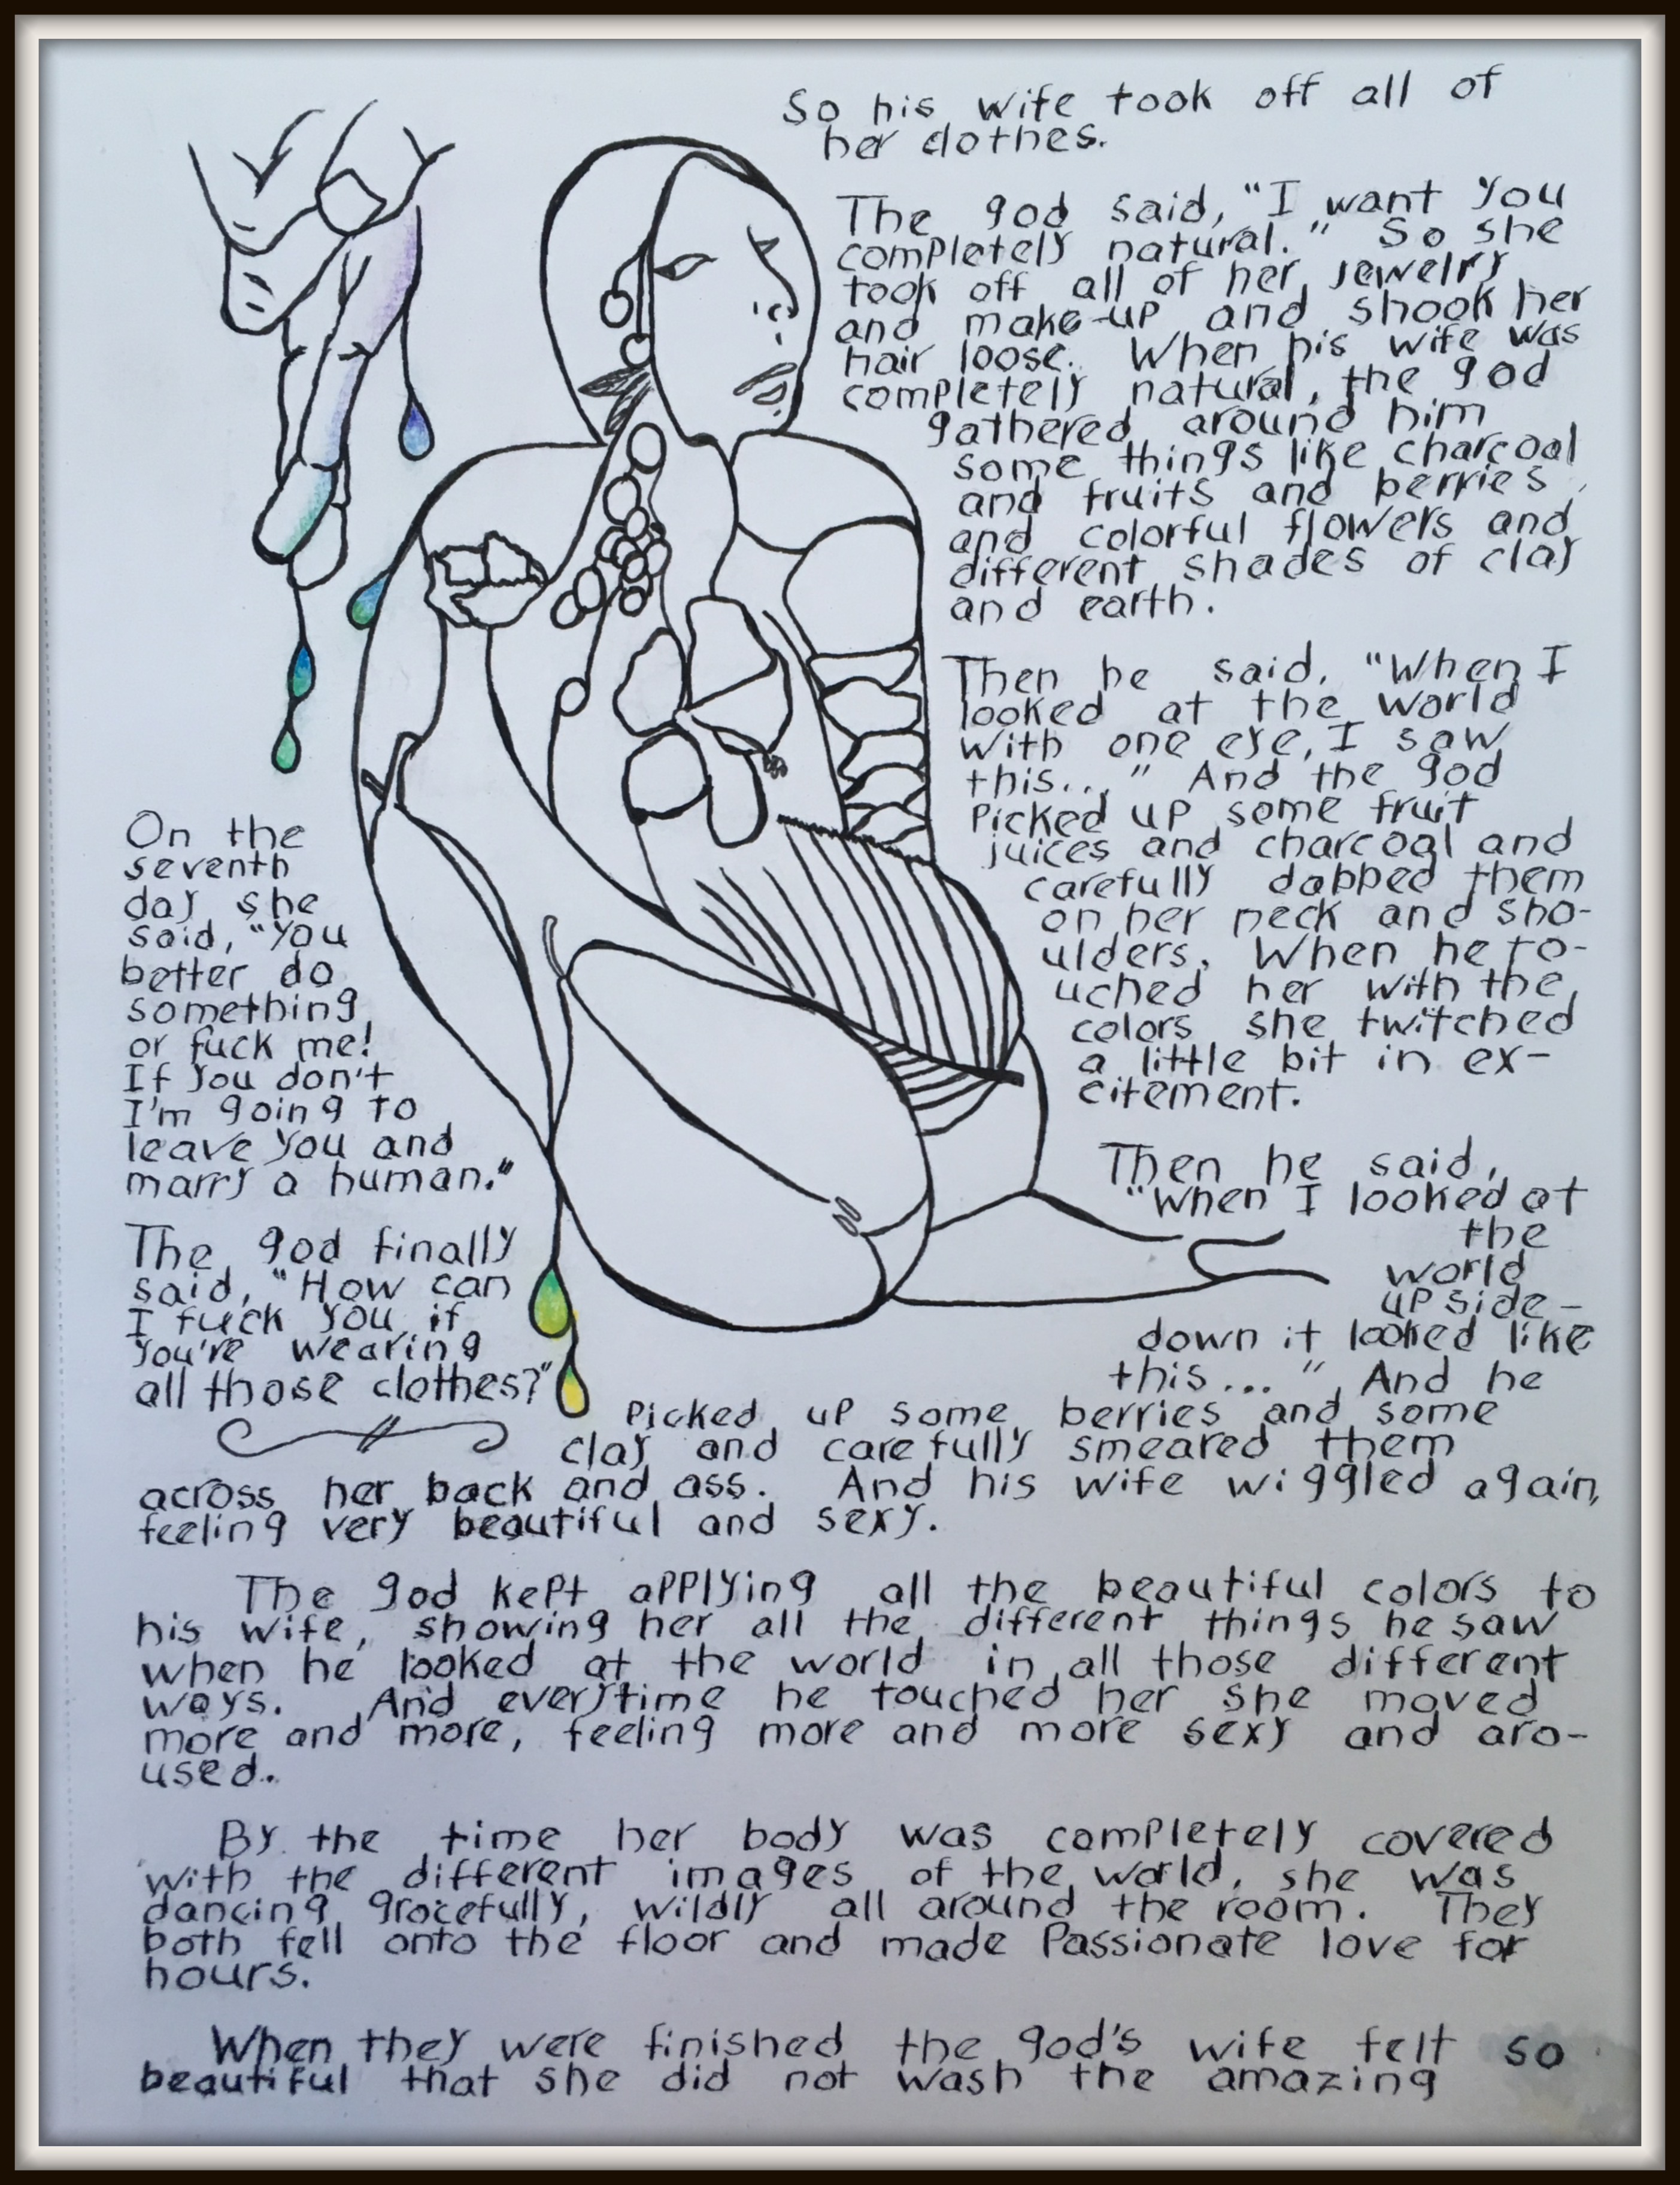 On the
seventh
day she
said, "You
better do
something
or fuck me!
If you don't
I'm going to
leave you and
marry a human."
The god finally
said, "How can
I fuck you if
you're wearing
all those clothes?"
So his wife took off all of
her clothes.
The god said, "I want you
completely natural." So she
took off all of her jewelry
and make-up and shook her
hair loose. When his wife was
completely natural, the god
gathered around him
some things like charcoal
and fruits and berries
and colorful flowers and
different shades of clay
and earth.
Then he said, "When I
looked at the world
with one eye, I saw
this..." And the god
picked up some fruit
juices and charcoal and
carefully dabbed them
on her neck and sho-
ulders. When he to-
uched her with the
colors she twitched
a little bit in ex-
citement.
Then he said,
"When I looked at
the
world
upside-
down it looked like
this..." And he
picked up some berries and some
clay and carefully smeared them
across her back and ass. And his wife wiggled again,
feeling very beautiful and sexy.
The god kept applying all the beautiful colors to
his wife, showing her all the different things he saw
when he looked at the world in all those different
ways. And everytime he touched her she moved
more and more, feeling more and more sexy and aro-
used.
By the time her body was completely covered
with the different images of the world, she was
dancing gracefully, wildly all around the room. They
both fell onto the floor and made passionate love for
hours.
When they were finished the god's wife felt so
beautiful that she did not wash the amazing